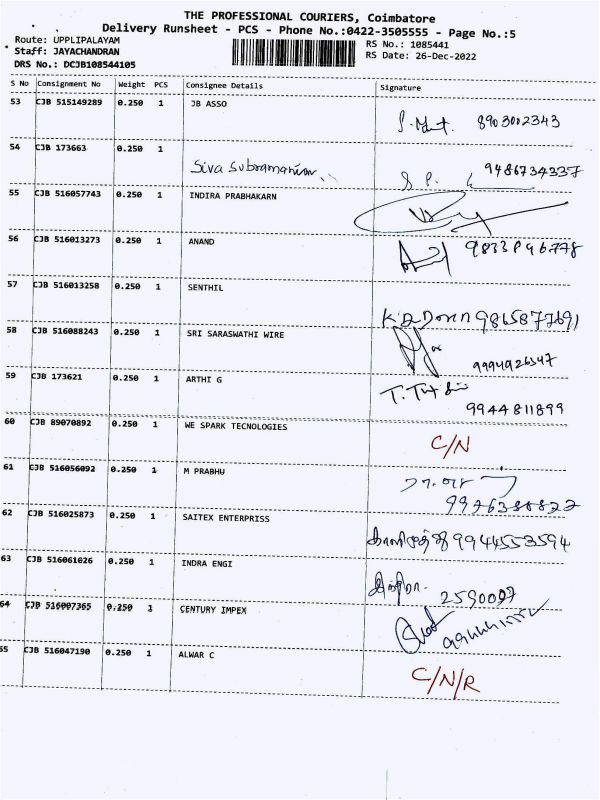 THE PROFESSIONAL COURIERS, Coimbatore
Delivery Runsheet - PCS - Phone No.:0422-3505555 - Page No.:5
Route: UPPLIPALAYAM
RS No.: 1085441
Staff: JAYACHANDRAN
RS Date: 26-Dec-2022
DRS No.: DCJB108544105
S No Consignment No Weight PCS Consignee Details Signature
53 CJB 515149289 0.250 1 JB ASSO 8903002343
54 CJB 173663 0.250 1 Siva Subramanian 9486734337
55 CJB 516057743 0.250 1 INDIRA PRABHAKARN
56 CJB 516013273 0.250 1 ANAND
57 CJB 516013258 0.250 1 SENTHIL 9865877691
58 CJB 516088243 0.250 1 SRI SARASWATHI WIRE 9994926347
59 CJB 173621 0.250 1 ARTHI G 9944811899
60 CJB 89070892 0.250 1 WE SPARK TECNOLOGIES C/N
61 CJB 516056092 0.250 1 M PRABHU
62 CJB 516025873 0.250 1 SAITEX ENTERPRISS 9944553594
63 CJB 516061026 0.250 1 INDRA ENGI 2590097
64 CJB 516007365 0.250 1 CENTURY IMPEX
65 CJB 516047190 0.250 1 ALWAR C C/N/R